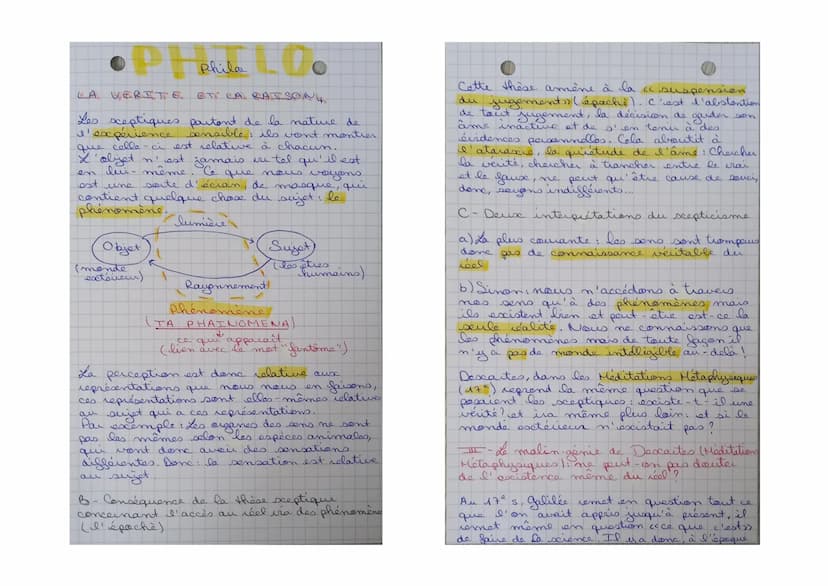 PHILO
Philo
LA VERITE ET LA RAISON
Les sceptiques partent de la nature de
l'expérience sensible : ils vont montrer
que celle-ci est relative à chacun.
L'objet n'est jamais vu tel qu'il est
en lui-même. Ce que nous voyons
est une sorte d'écran, de masque, qui
contient quelque chose du sujet : le
phénomène.
lumière
Objet
Sujet
(monde
extérieur)
(les êtres
humains)
Rayonnement
Phénomène
(TA PHAINOMENA)
ce qui apparaît
(lien avec le mot "fantôme")
La perception est donc relative aux
représentations que nous nous en faisons,
ces représentations sont elles-mêmes relatives
au sujet qui a ces représentations.
Par exemple : Les organes des sens ne sont
pas les mêmes selon les espèces animales,
qui vont donc avoir des sensations
différentes. Donc : la sensation est relative
au sujet
B - Conséquence de la thèse sceptique
concernant l'accès au réel via des phénomènes
(l'épochè)
Cette thèse amène à la « suspension
du jugement » (épochè). C'est l'abstention
de tout jugement, la décision de garder son
âme inactive et de s'en tenir à des
évidences personnelles. Cela aboutit à
l'ataraxie, la quiétude de l'âme : Chercher
la vérité, chercher à trancher entre le vrai
et le faux, ne peut qu'être cause de souci,
donc, soyons indifférents...
C - Deux interprétations du scepticisme
a) La plus courante : les sens sont trompeurs
donc pas de connaissance véritable du
réel
b) Sinon : nous n'accédons à travers
nos sens qu'à des phénomènes mais
ils existent bien et peut-être est-ce la
seule réalité. Nous ne connaissons que
les phénomènes mais de toute façon il
n'y a pas de monde intelligible au-delà !
Descartes, dans les Méditations Métaphysiques
(17e) reprend la même question que se
posaient les sceptiques : existe-t-il une
vérité ? et ira même plus loin : et si le
monde extérieur n'existait pas ?
III - Le malin génie de Descartes (Méditations
Métaphysiques) : ne peut-on pas douter
de l'existence même du réel ?
Au 17e s, Galilée remet en question tout ce
que l'on avait appris jusqu'à présent, il
remet même en question « ce que c'est »
de faire de la science. Il y a donc, à l'époque